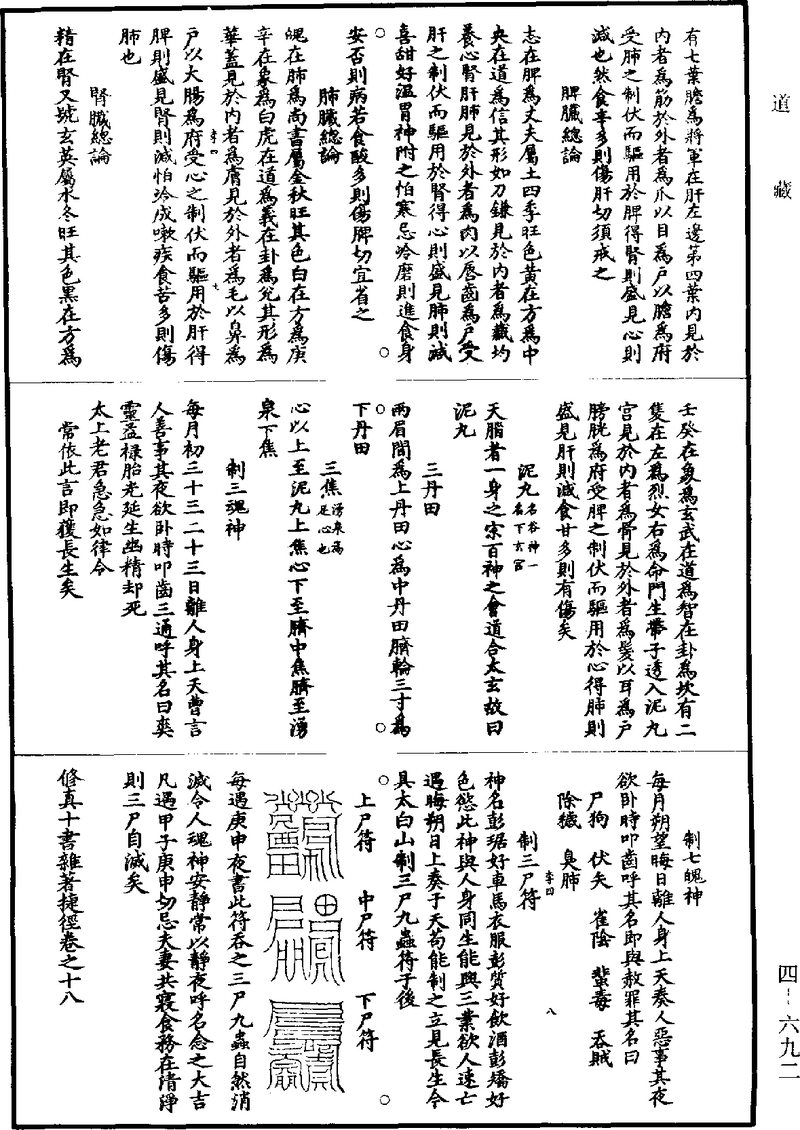 道藏
有七葉膽為將軍在肝左邊第四葉內見於
內者為筋於外者為爪以目為戶以膽為府
受肺之制伏而驅用於脾得腎則盛見心則
減也然食辛多則傷肝切須戒之
脾臟總論
志在脾為丈夫屬土四季旺色黃在方為中
央在道為信其形如刀鐮見於內者為藏均
養心腎肝肺見於外者為肉以唇齒為戶受
肝之制伏而驅用於腎得心則盛見肺則減
喜甜好溫胃神附之怕寒忌冷磨則進食身
安否則病若食酸多則傷脾切宜省之
肺臟總論
魄在肺為尚書屬金秋旺其色白在方為庚
辛在象為白虎在道為義在卦為兌其形為
華蓋見於內者為膚見於外者為毛以鼻為
戶以大腸為府受心之制伏而驅用於肝得
脾則盛見腎則減怕冷成嗽疾食苦多則傷
肺也
腎臟總論
精在腎又號玄英屬水冬旺其色黑在方為
壬癸在象為玄武在道為智在卦為坎有二
隻在左為烈女右為命門生帶子透入泥丸
宮見於內者為骨見於外者為髮以耳為戶
膀胱為府受脾之制伏而驅用於心得肺則
盛見肝則減食甘多則有傷矣
泥丸名谷神一名下玄宮
天腦者一身之宗百神之會道合太玄故曰
泥丸
三丹田
兩眉間為上丹田心為中丹田臍輪三寸為
下丹田
三焦湧泉為足心也
心以上至泥丸上焦心下至臍中焦臍至湧
泉下焦
制三魂神
每月初三十三二十三日離人身上天曹言
人善事其夜欲臥時叩齒三通呼其名曰爽
靈益祿胎光延生幽精却死
太上老君急急如律令
常依此言即獲長生矣
制七魄神
每月朔望晦日離人身上天奏人惡事其夜
欲臥時叩齒呼其名即與赦罪其名曰
尸狗 伏矢 雀陰 蜚毒 吞賊
除穢 臭肺
制三尸符
神名彭琚好車馬衣服彭質好飲酒彭矯好
色慾此神與人身同生能與三業欲人速亡
遇晦朔日上奏于天苟能制之立見長生今
具太白山制三尸九蟲符子後
上尸符 中尸符 下尸符
每遇庚申夜書此符吞之三尸九蟲自然消
滅令人魂神安靜常以靜夜呼名念之大吉
凡遇甲子庚申切忌夫妻共寢食務在清淨
則三尸自滅矣
修真十書雜著捷徑卷之十八
四-六九二